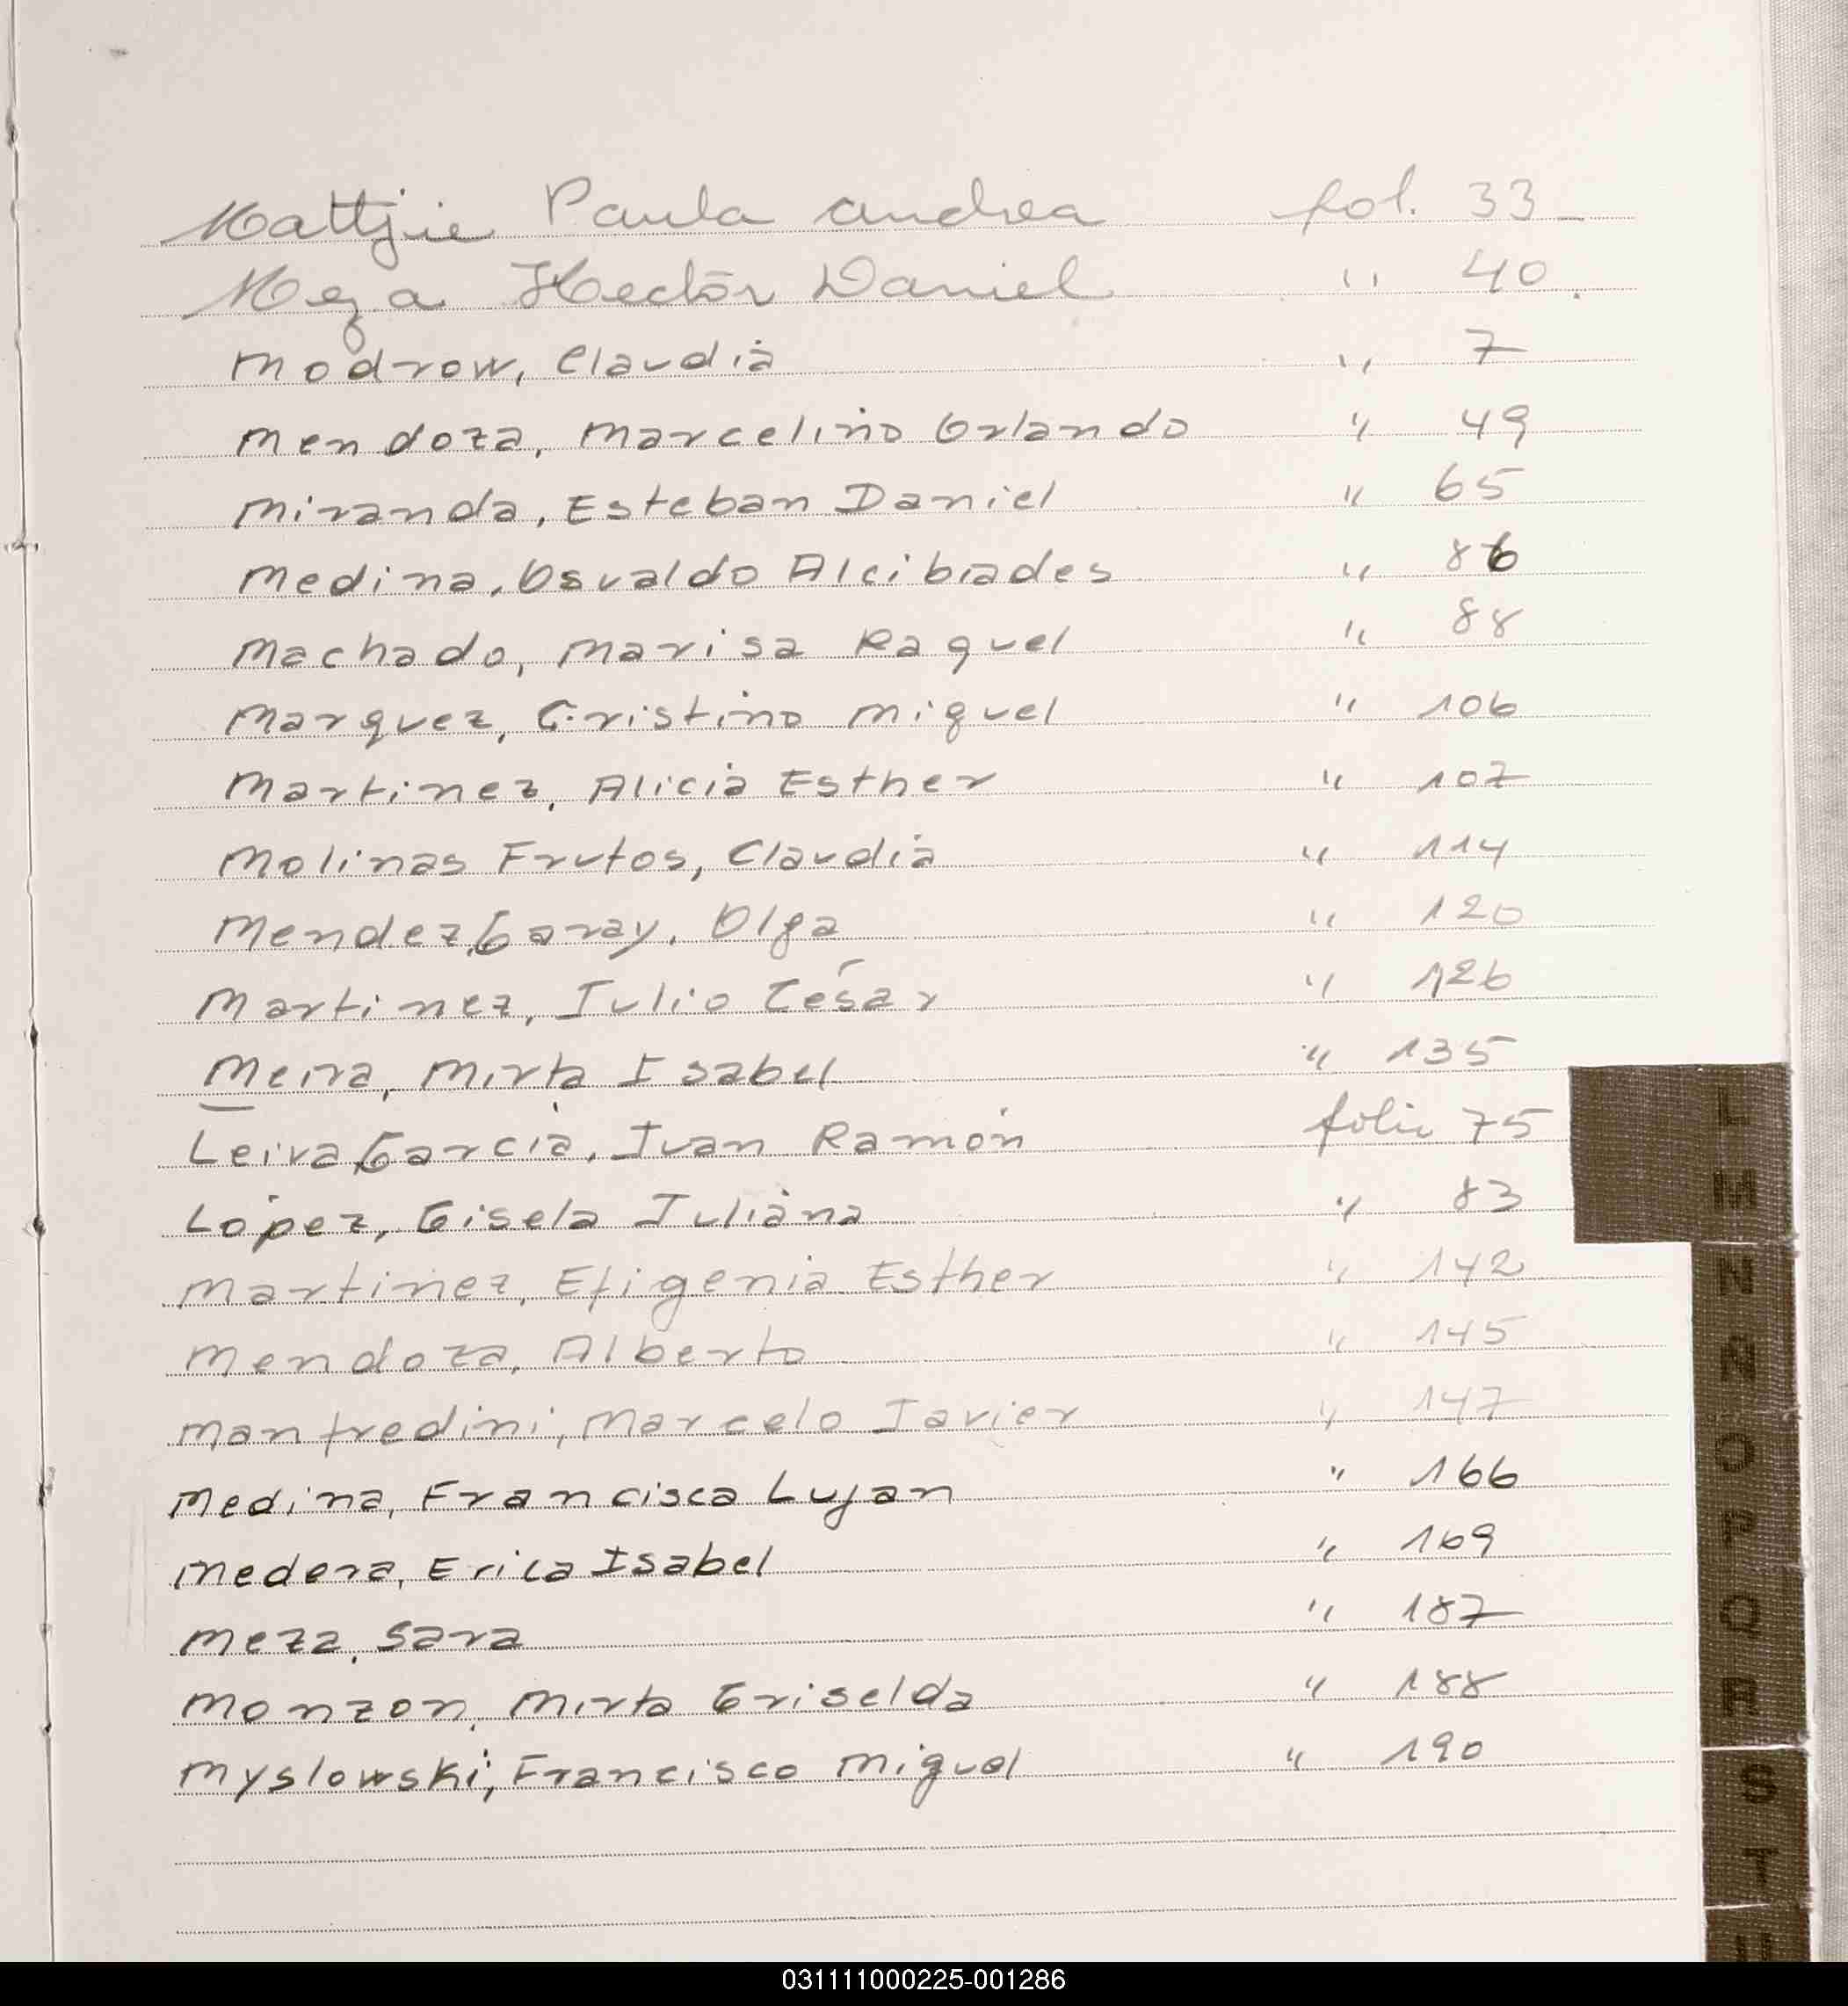 Mattjie Paula Andrea fol. 33-
Meza Hector Daniel " 40.
Modrow, Claudia " 7
Mendoza, Marcelino Orlando " 49
Miranda, Esteban Daniel " 65
Medina, Osvaldo Alcibiades " 86
Machado, Marisa Raquel " 88
Marquez, Cristino Miguel " 106
Martinez, Alicia Esther " 107
Molinas Frutos, Claudia " 114
Mendez Garay, Olga " 120
Martinez, Julio César " 126
Meira, Mirta Isabel " 135
Leiva Garcia, Ivan Ramón folio 75
López, Gisela Juliana " 83
Martinez, Efigenia Esther " 142
Mendoza, Alberto " 145
Manfredini, Marcelo Javier " 147
Medina, Francisca Lujan " 166
Medera, Erica Isabel " 169
Meza, Sara " 187
Monzon, Mirta Griselda " 188
Myslowski, Francisco Miguel " 190
L
M
N
Ñ
O
P
Q
R
S
T
U
031111000225-001286